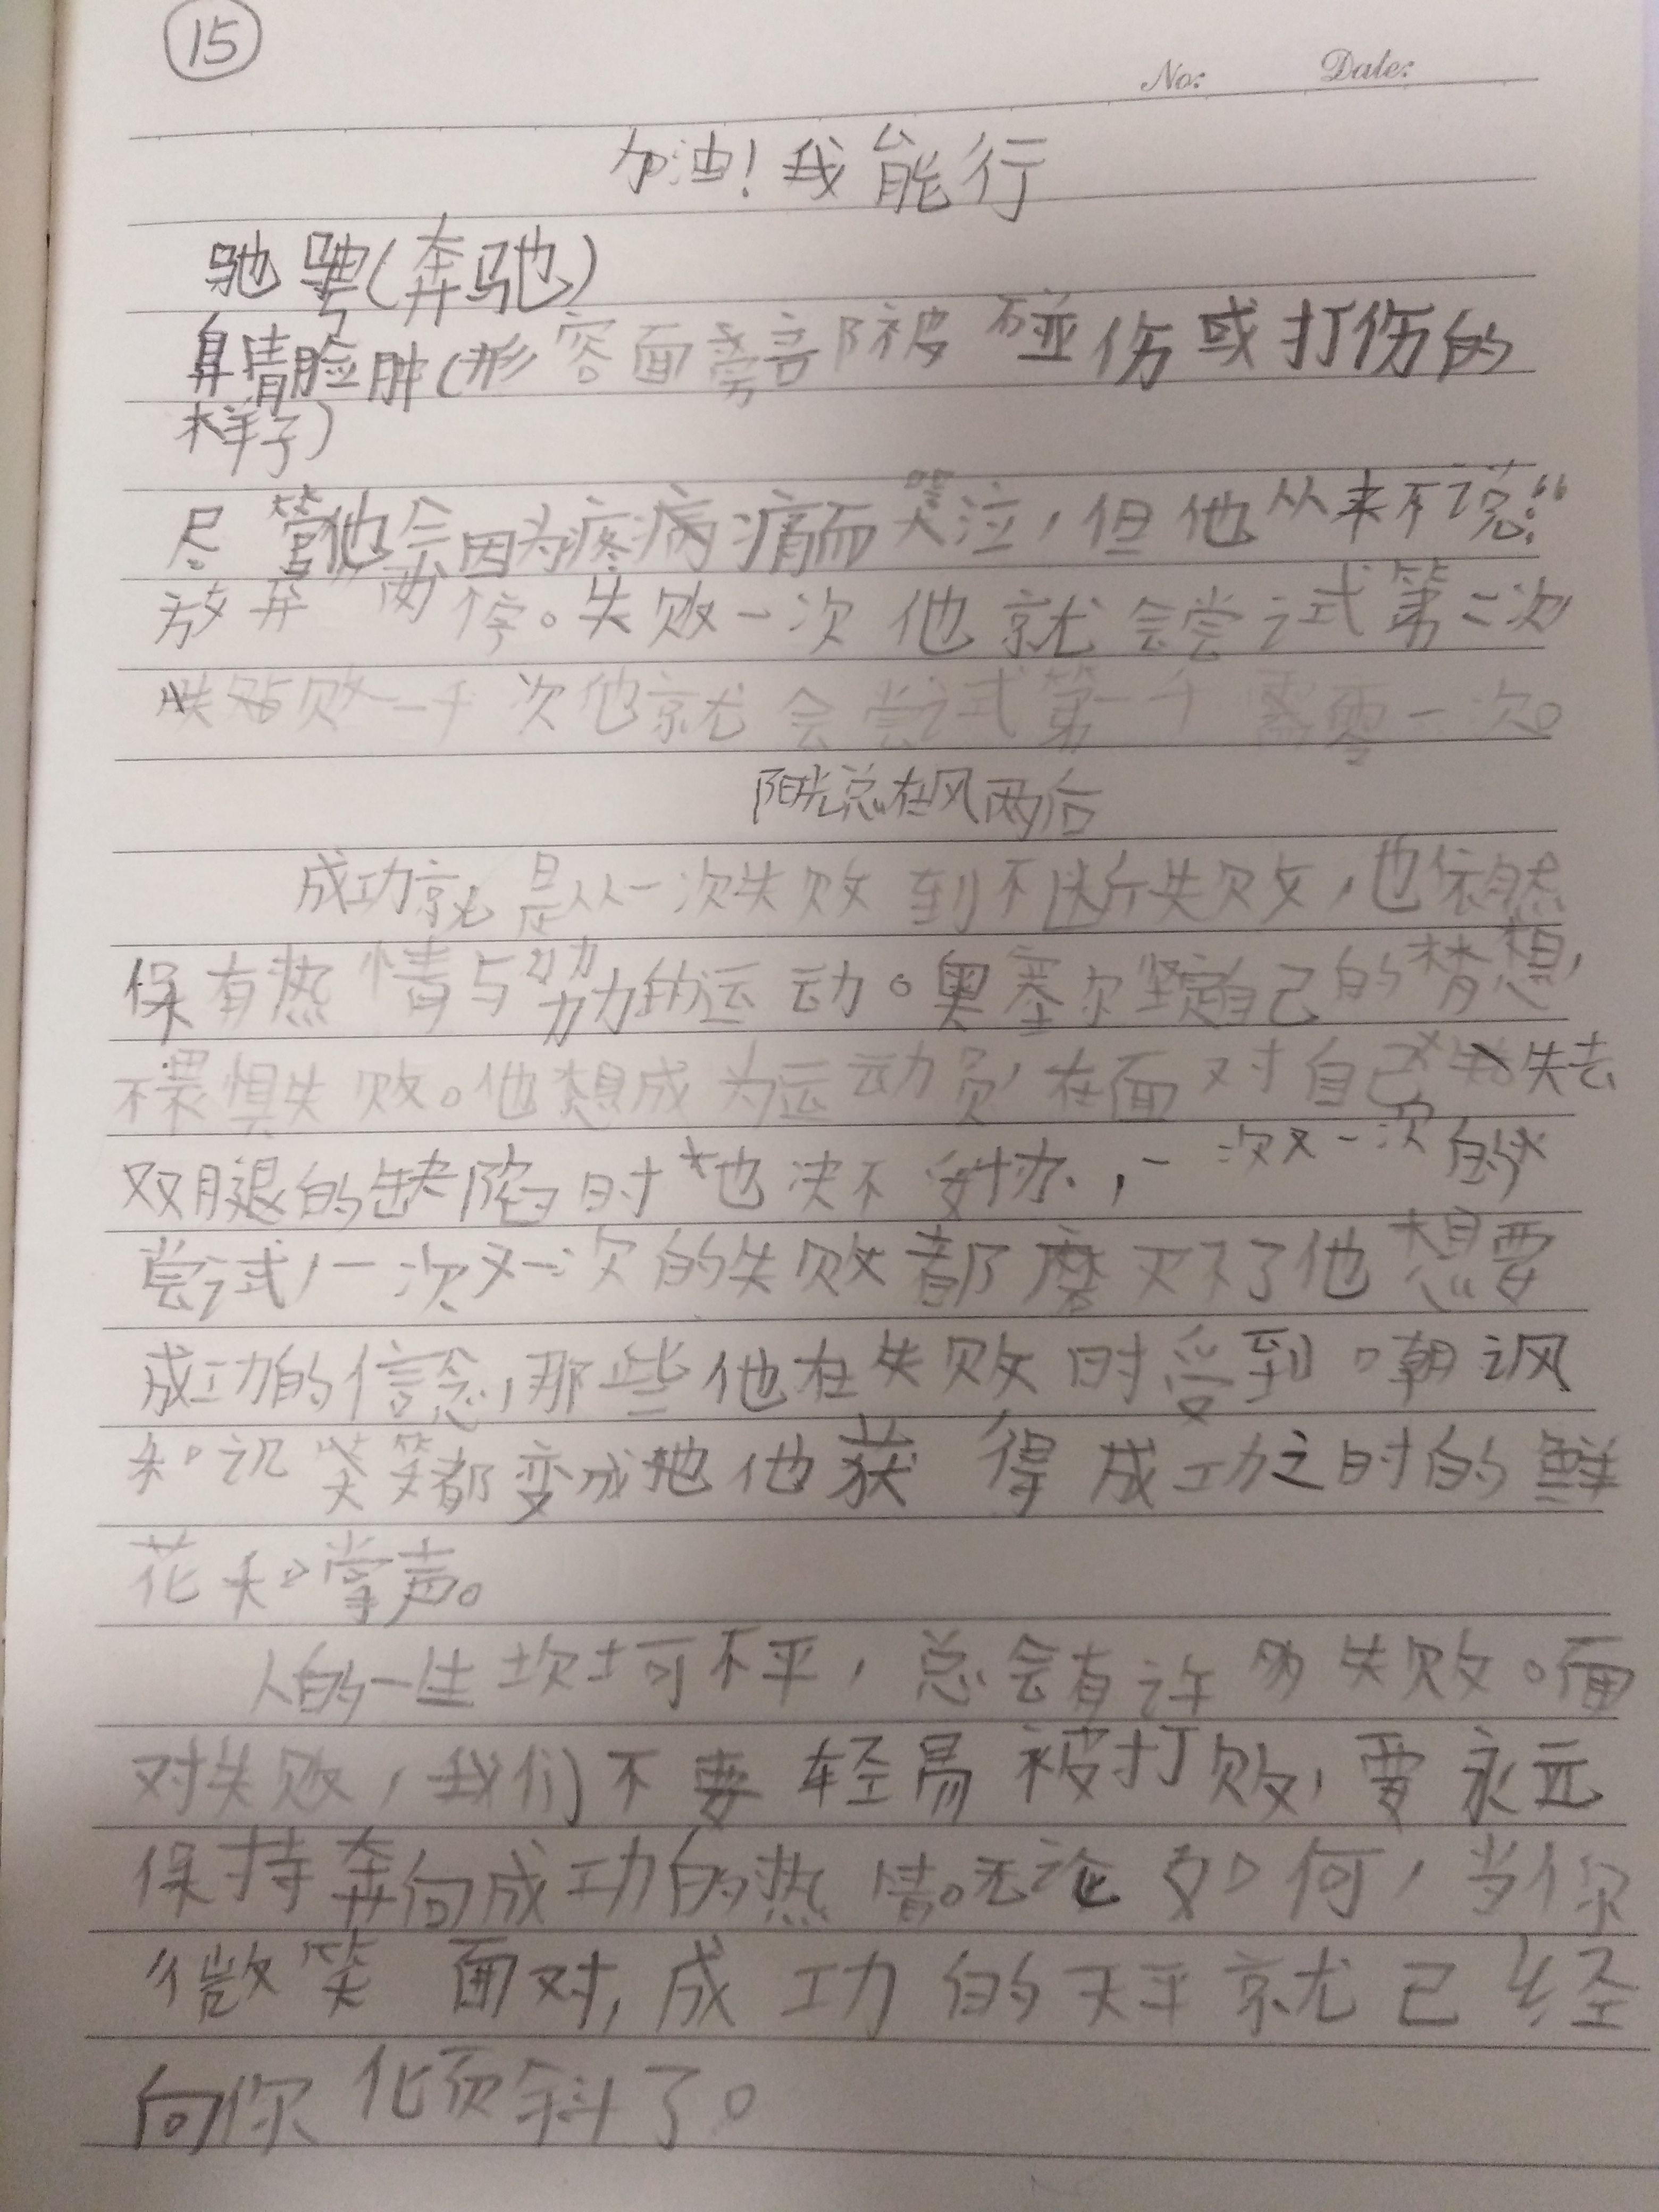 15
No: Date:
加油！我能行
驰骋（奔驰）
鼻青脸肿（形容面部被碰伤或打伤的
样子）
尽管他会因为疼痛而哭泣，但他从来不说：“
放弃”两字。失败一次他就会尝试第二次
失败一千次他就会尝试第一千零一次。
阳光总在风雨后
成功就是从一次失败到不断失败，也依然
保有热情与努力的运动。奥塞尔坚定自己的梦想，
不畏惧失败。他想成为运动员，在面对自己失去
双腿的缺陷时也决不妥协，一次又一次的
尝试，一次又一次的失败都磨灭不了他想要
成功的信念，那些他在失败时受到嘲讽
和讥笑都变成他获得成功之时的鲜
花和掌声。
人的一生坎坷不平，总会有许多失败。面
对失败，我们不要轻易被打败，要永远
保持奔向成功的热情。无论如何，当你
微笑面对，成功的天平就已经
向你倾斜了。